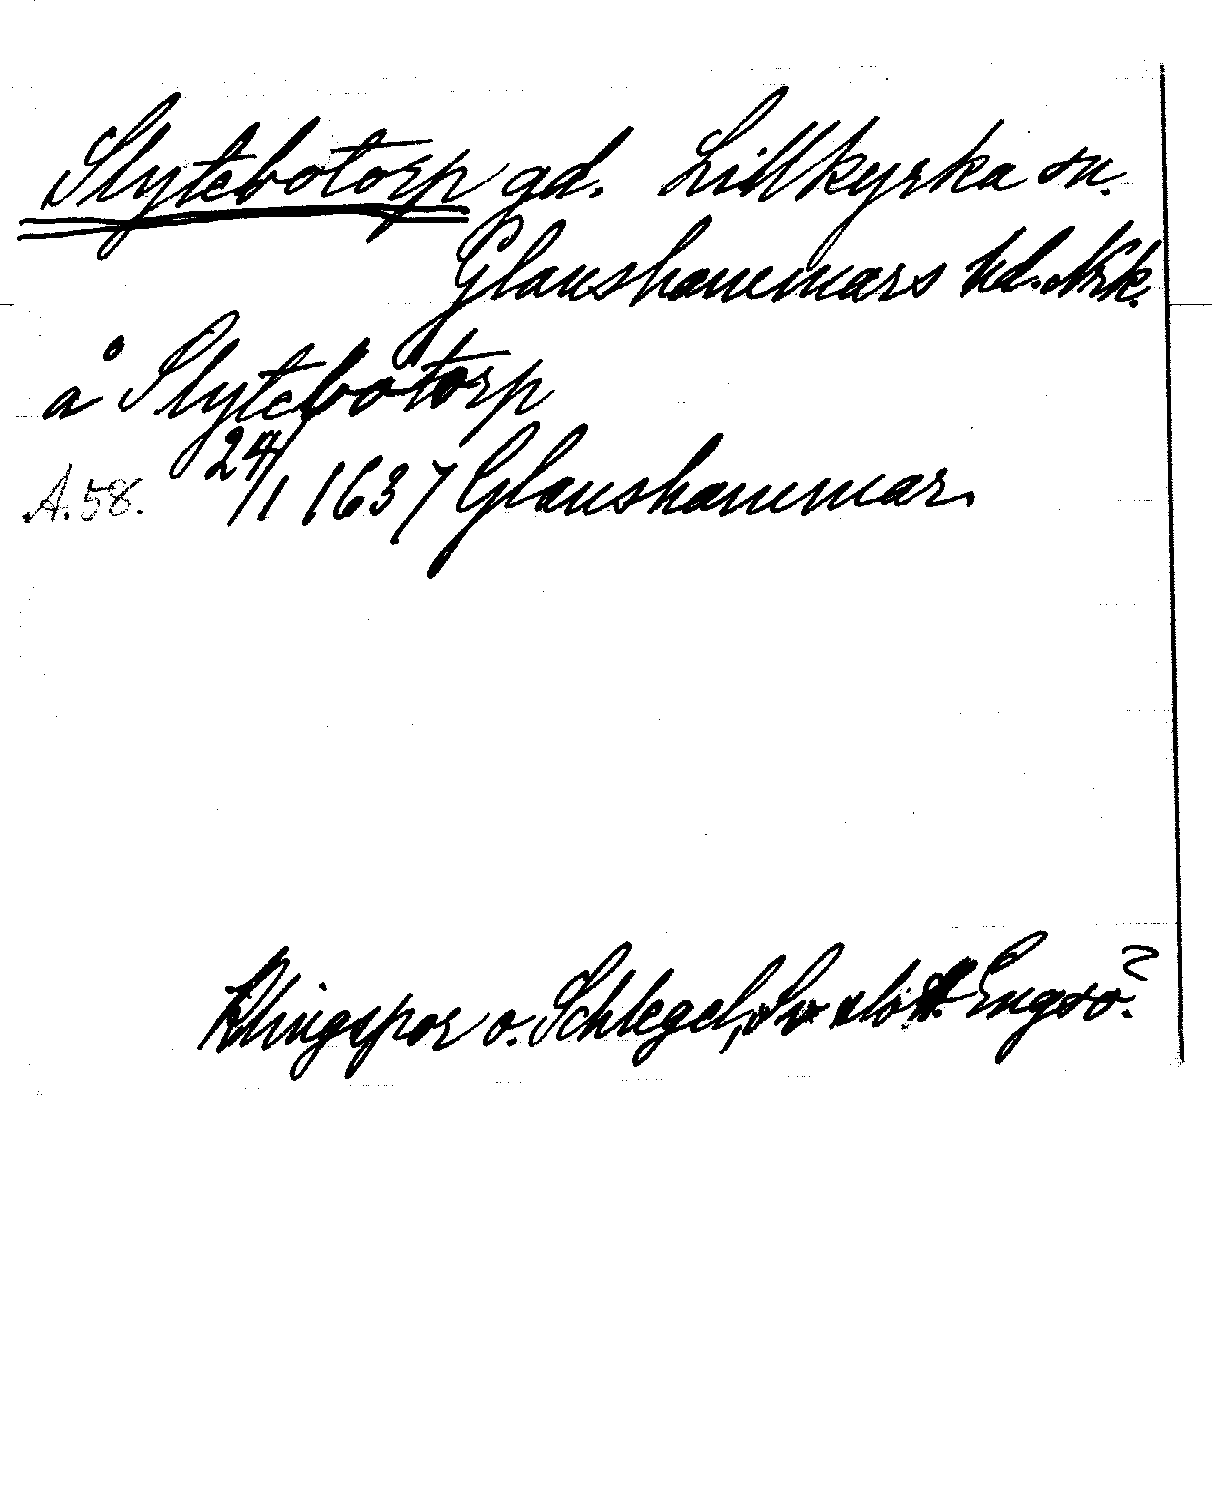 Slytebotorp gd. Lillkyrka sn.
Glanshammars hd. Nrk.
å Slytebotorp
A.58. 24/1 1637 Glanshammar.
Klingspor o. Schlegel, Sv. slott. Engsö?